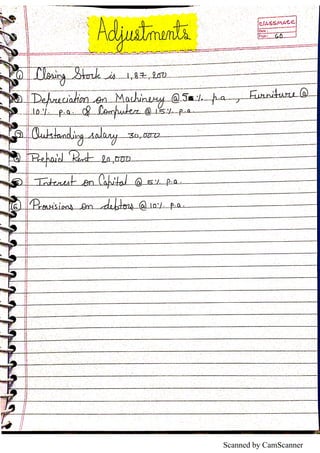 Adjustments.
classmate
Date
Page 60
① Closing Stock is 1,87,200
② Depreciation on Machinery @ 5% p.a., Furniture @
10% p.a. & Computer @ 15% p.a
③ Outstanding salary 30,000
④ Prepaid Rent 20,000.
⑤ Interest on Capital @ 5% p.a.
⑥ Provisions on debtors @ 10% p.a.
Scanned by CamScanner